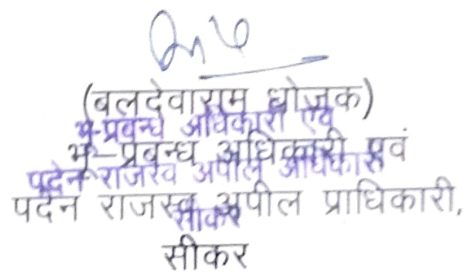 (बलदेवाराम धोजक)
भू-प्रबन्ध अधिकारी एवं
भू–प्रबन्ध अधिकारी एवं
पदेन राजस्व अपील अधिकारी
पदेन राजस्व अपील प्राधिकारी,
सीकर
सीकर